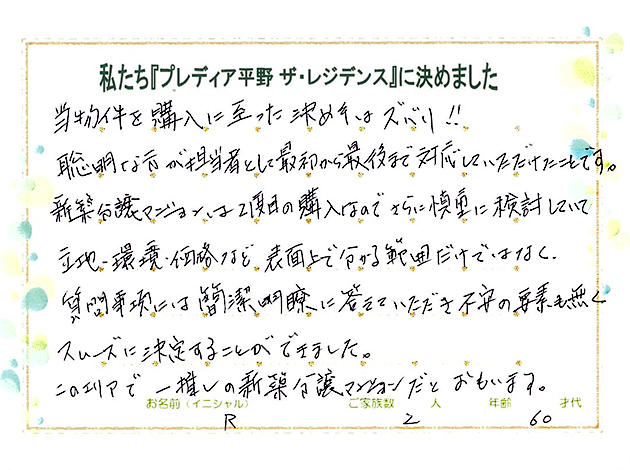 私たち『プレディア平野 ザ・レジデンス』に決めました
当物件を購入に至った決め手はズバリ!!
聡明な方が担当者として最初から最後まで対応していただけたことです。
新築分譲マンションは2度目の購入なのでさらに慎重に検討していて
立地・環境・価格など、表面上で分かる範囲だけではなく、
質問事項には簡潔明瞭に答えていただき不安の要素も無く
スムーズに決定することができました。
このエリアで一推しの新築分譲マンションだとおもいます。
お名前(イニシャル) ご家族数 人 年齢 才代
R 2 60